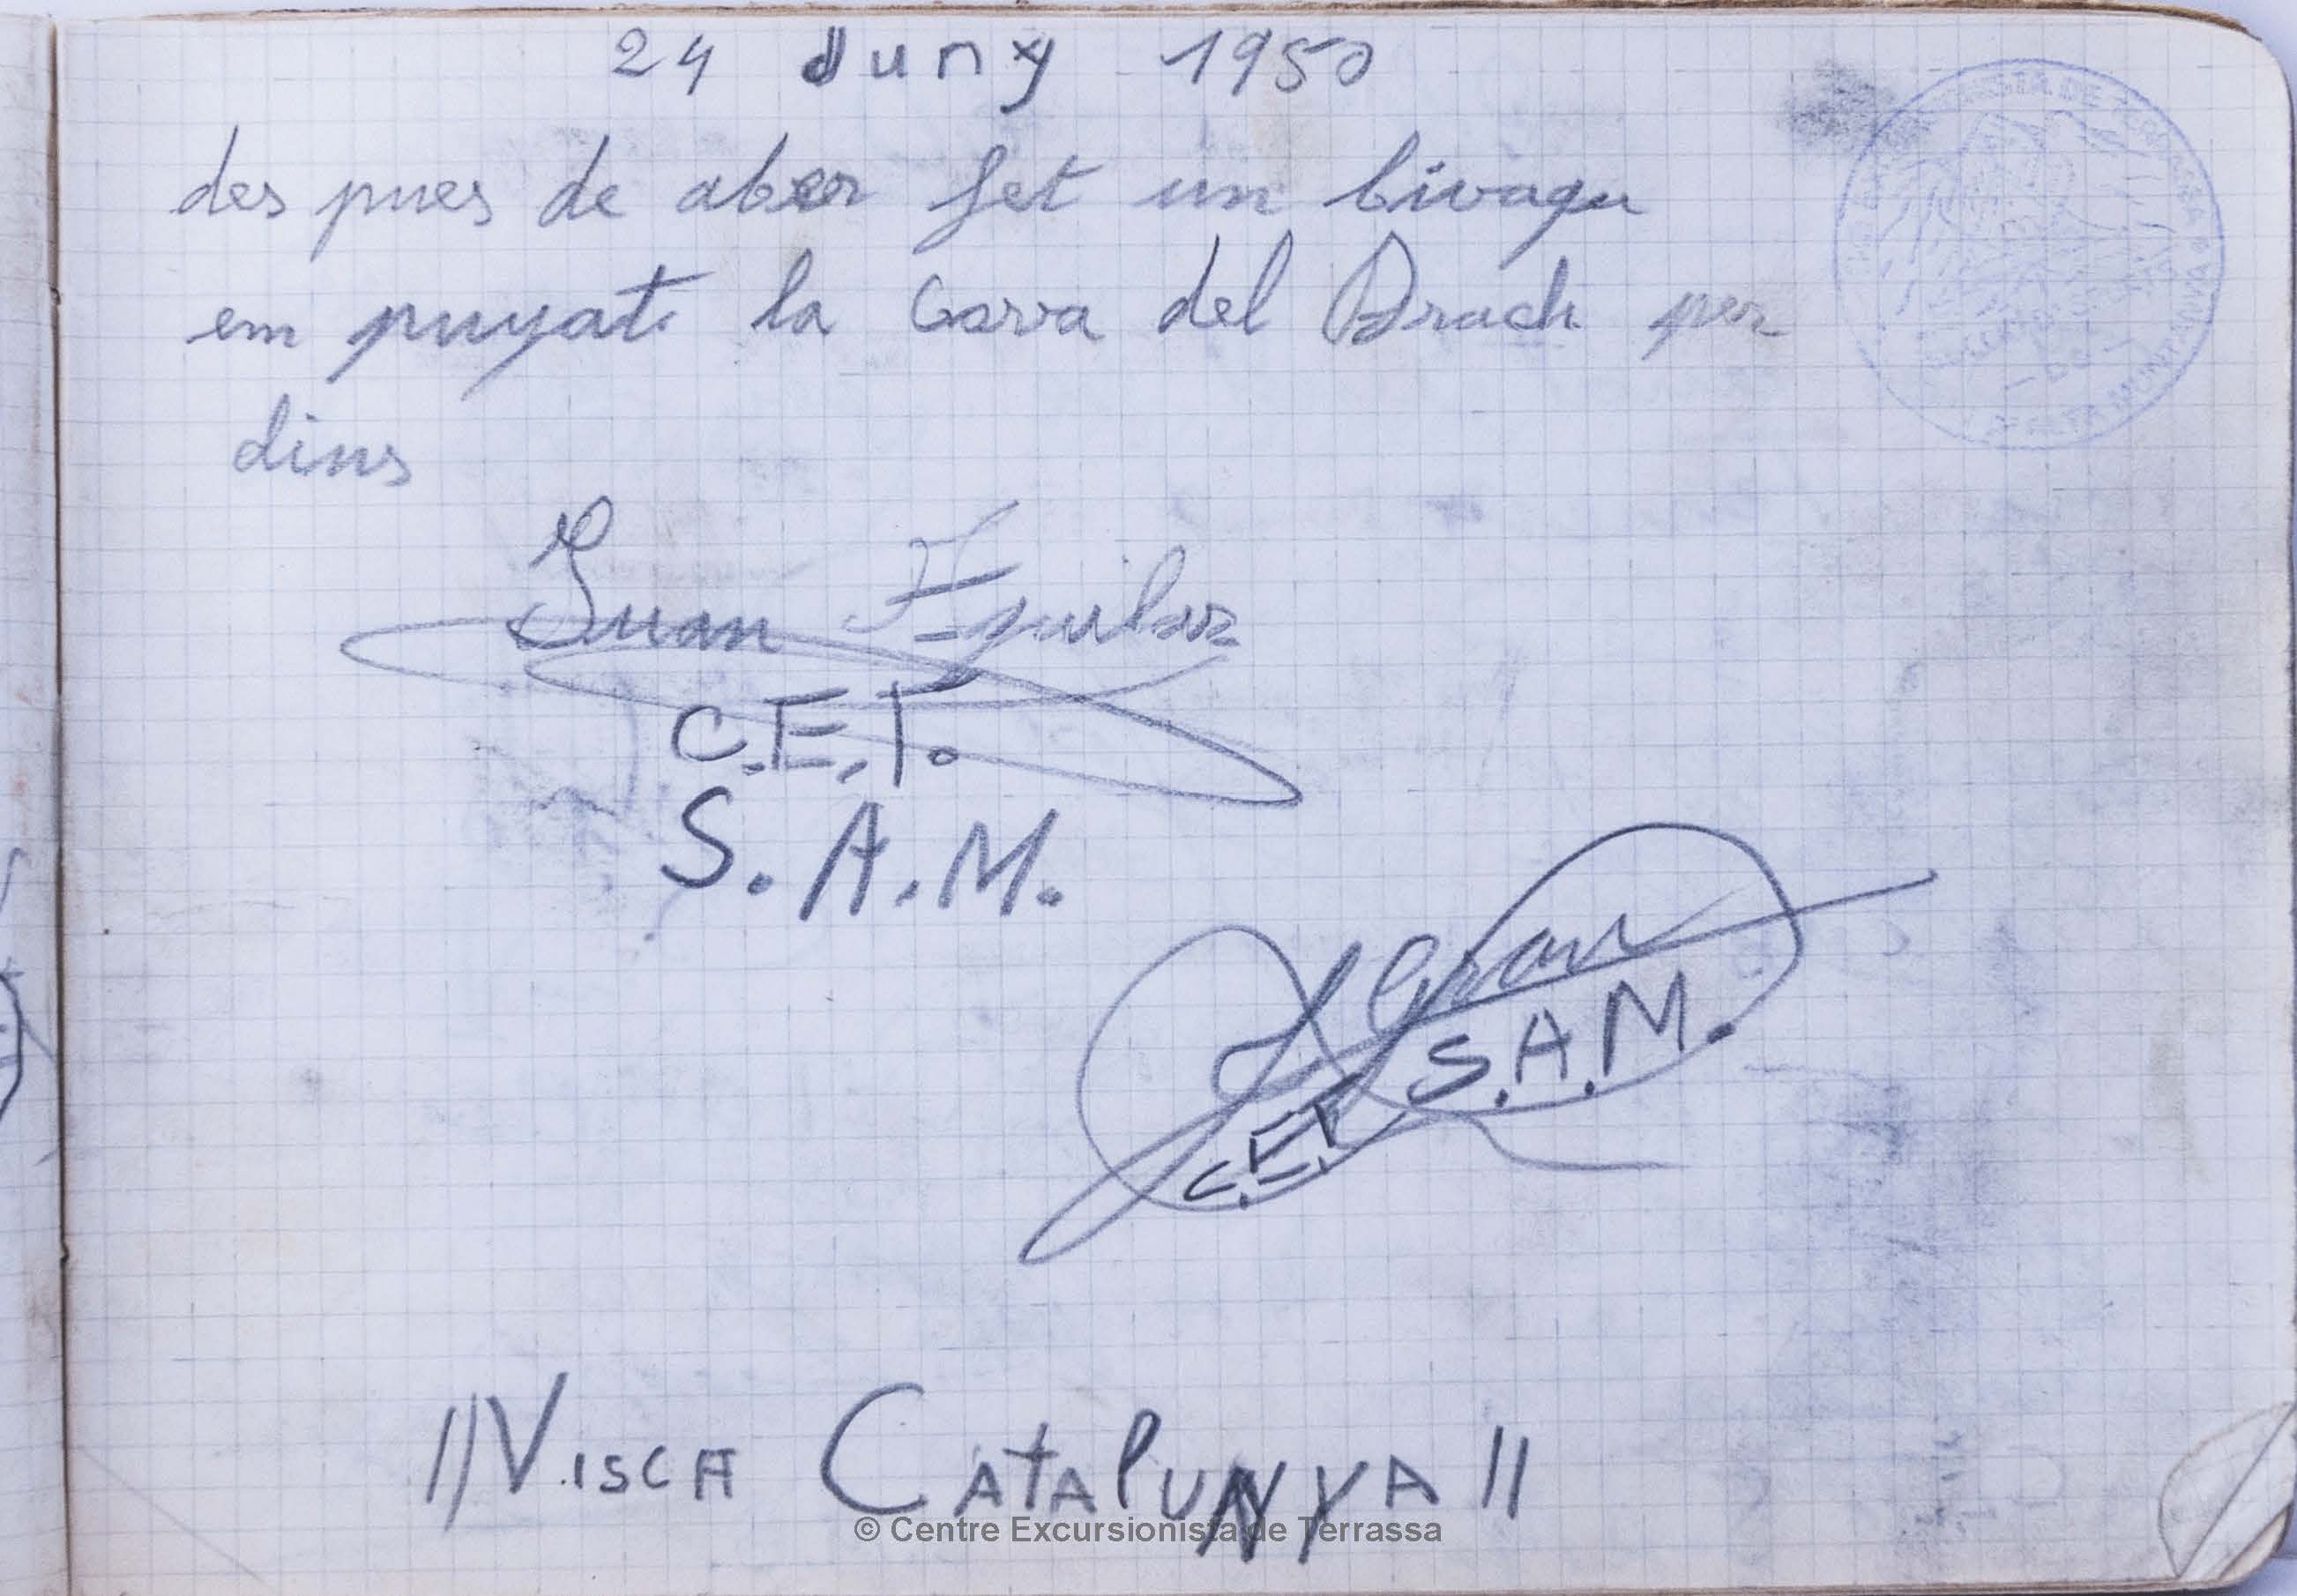 24 Juny 1950
des pues de aber fet un bivagu
em puyat la Cova del Drach per
dins
Juan Aguilar
C.E.T.
S.A.M.
J Gran
S.A.M.
C.E.T.
¡¡VISCA CATALUNYA!!
© Centre Excursionista de Terrassa